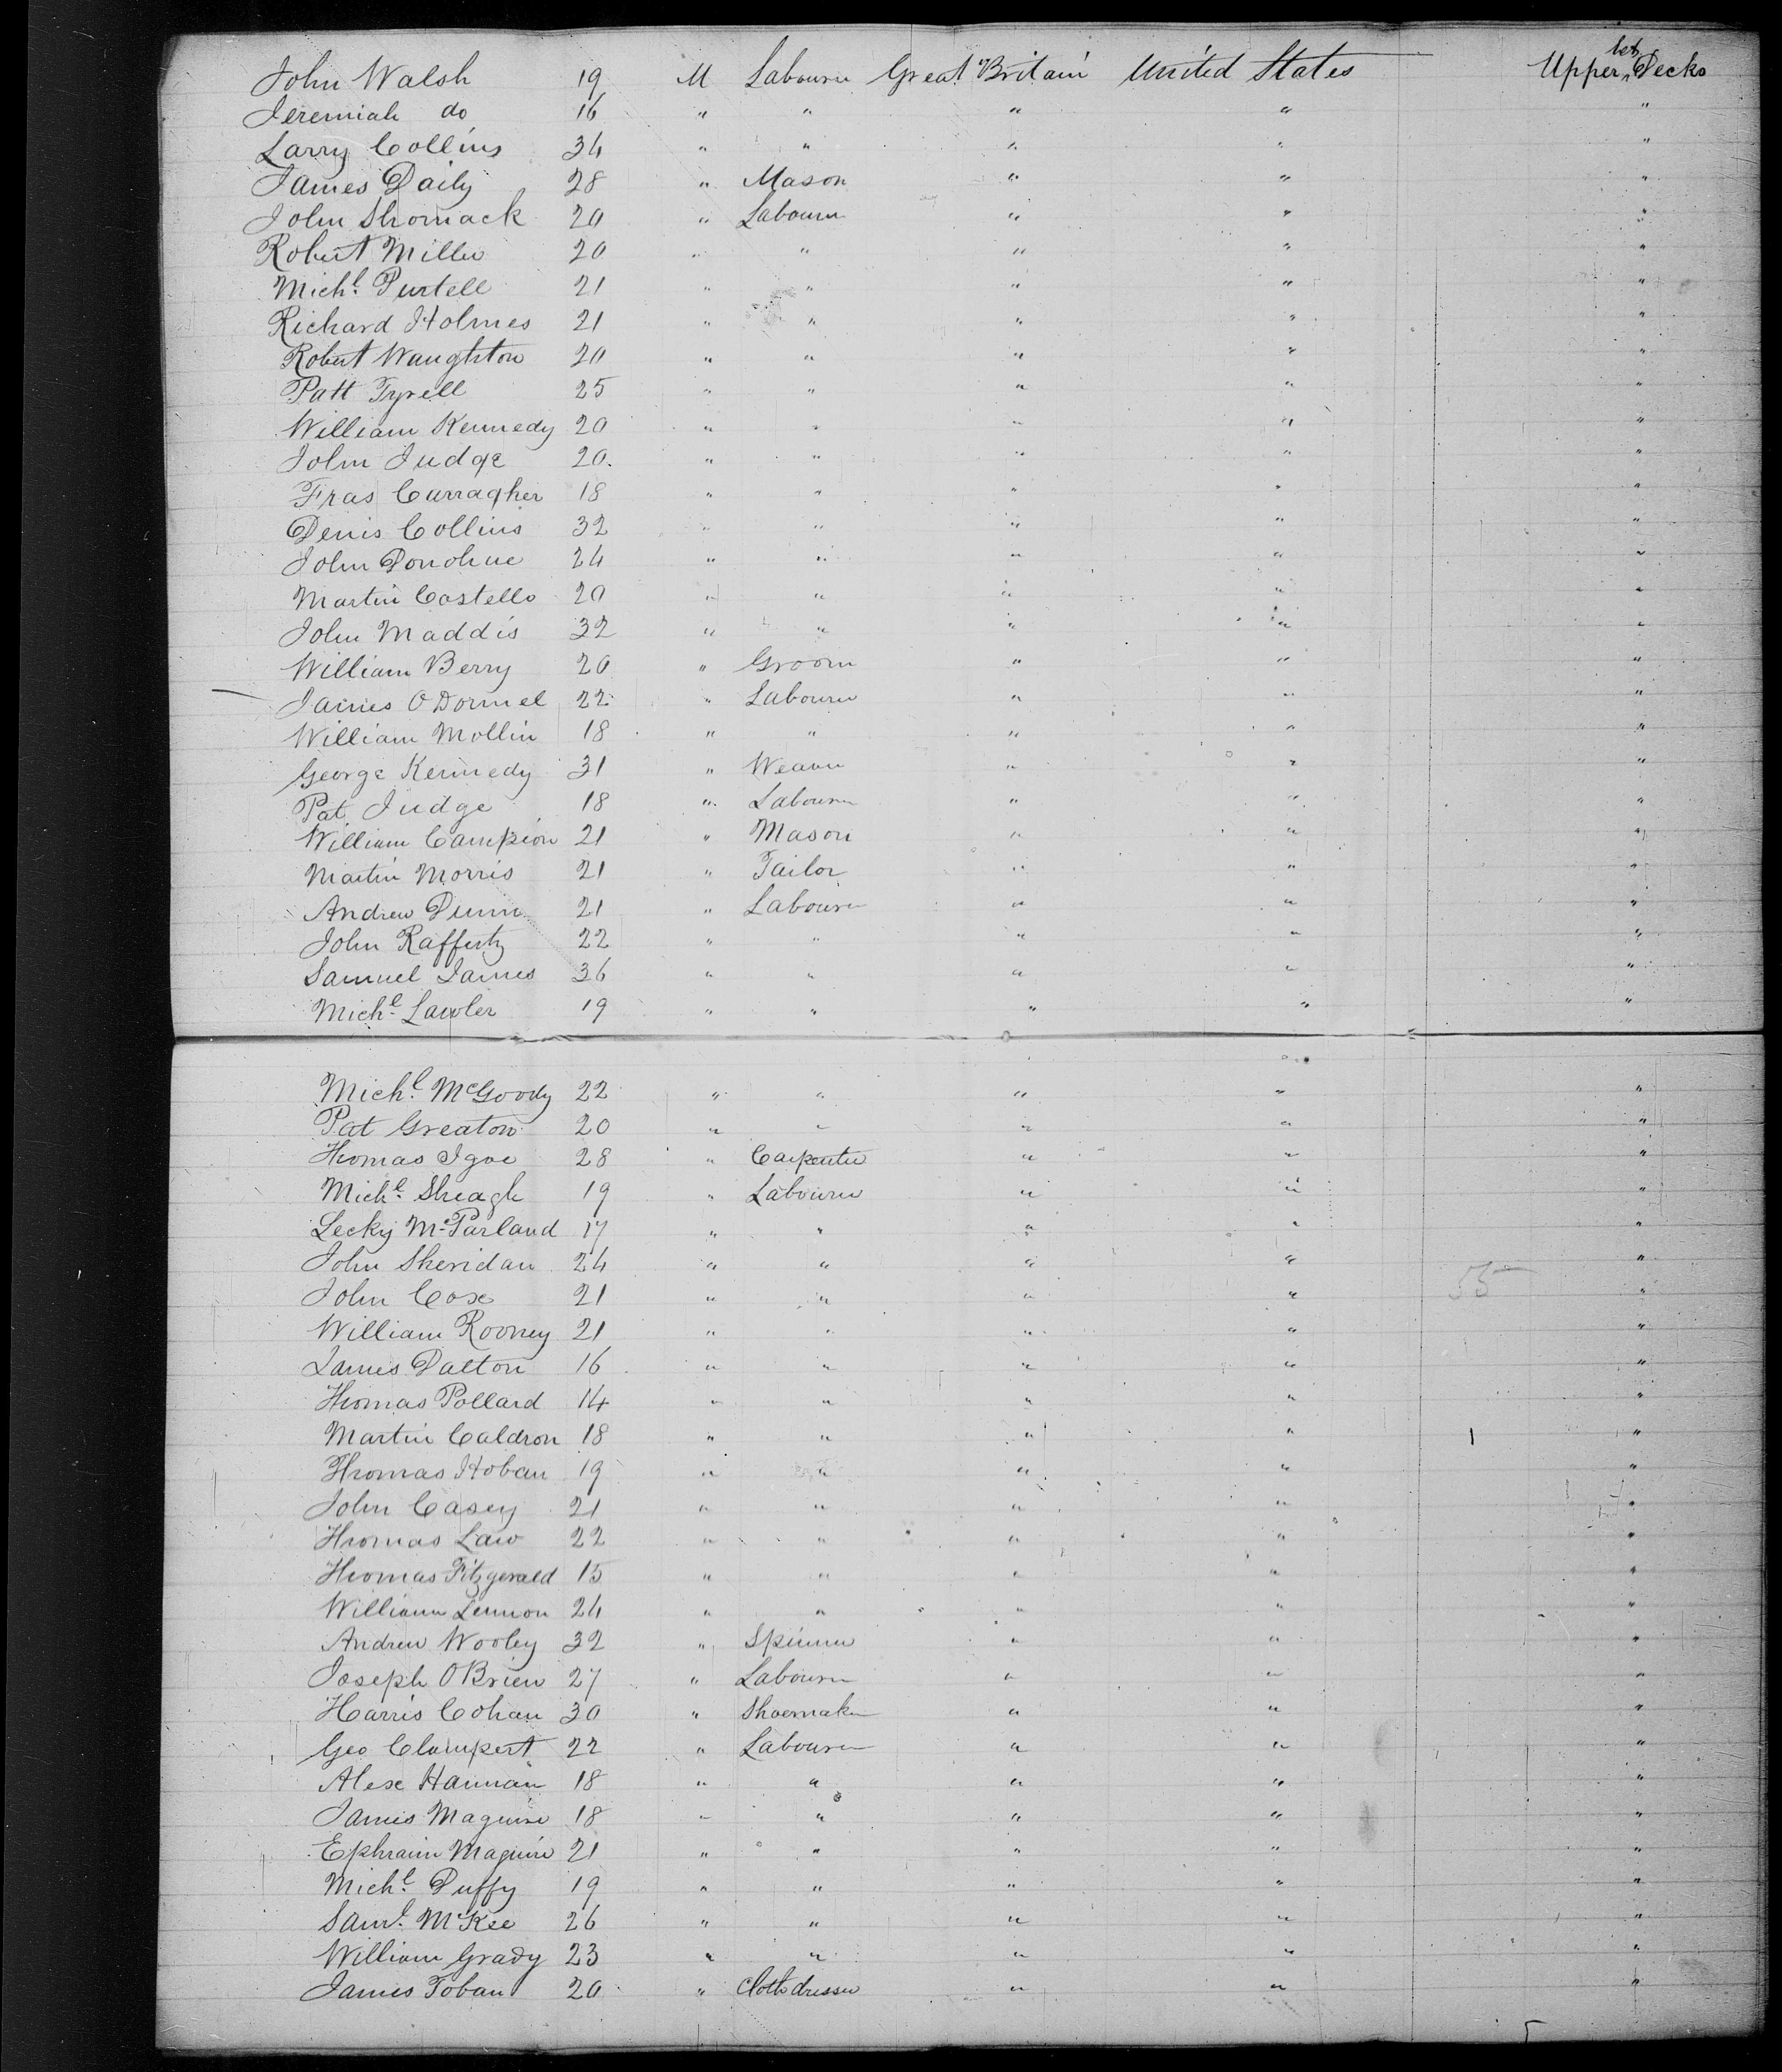 John Walsh 19 M Labourer Great Britain United States Upper bet Decks
Jeremiah do 16 " " " " "
Larry Collins 34 " " " " "
James Daily 28 " Mason " " "
John Shomack 20 " Labourer " " "
Robert Miller 20 " " " " "
Michl. Purtell 21 " " " " "
Richard Holmes 21 " " " " "
Robert Waughton 20 " " " " "
Patt Tyrell 25 " " " " "
William Kennedy 20 " " " " "
John Judge 20. " " " " "
Fras Carragher 18 " " " " "
Denis Collins 32 " " " " "
John Donohue 24 " " " " "
Martin Costello 20 " " " " "
John Maddis 32 " " " " "
William Berry 20 " Groom " " "
James ODonnel 22 " Labourer " " "
William Mollin 18 " " " " "
George Kennedy 31 " Weaver " " "
Pat Judge 18 " Labourer " " "
William Campion 21 " Mason " " "
Martin Morris 21 " Tailor " " "
Andrew Dunn 21 " Labourer " " "
John Rafferty 22 " " " " "
Samuel James 36 " " " " "
Michl. Lawler 19 " " " " "
Michl. McGoody 22 " " " " "
Pat Greaton 20 " " " " "
Thomas Igoe 28 " Carpenter " " "
Michl. Sheagh 19 " Labourer " " "
Lecky McParland 17 " " " " "
John Sheridan 24 " " " " "
John Cox 21 " " " " 55 "
William Rooney 21 " " " " "
James Dalton 16 " " " " "
Thomas Pollard 14 " " " " "
Martin Caldron 18 " " " " "
Thomas Hoban 19 " " " " "
John Casey 21 " " " " "
Thomas Law 22 " " " " "
Thomas Fitzgerald 15 " " " " "
William Lennon 24 " " " " "
Andrew Wooley 32 " Spinner " " "
Joseph OBrien 27 " Labourer " " "
Harris Cohan 30 " Shoemaker " " "
Geo Clampert 22 " Labourer " " "
Alex Hannan 18 " " " " "
James Maguire 18 " " " " "
Ephraim Maguire 21 " " " " "
Michl. Duffy 19 " " " " "
Saml. McKee 26 " " " " "
William Grady 23 " " " " "
James Toban 20 " Cloth dresser " " "